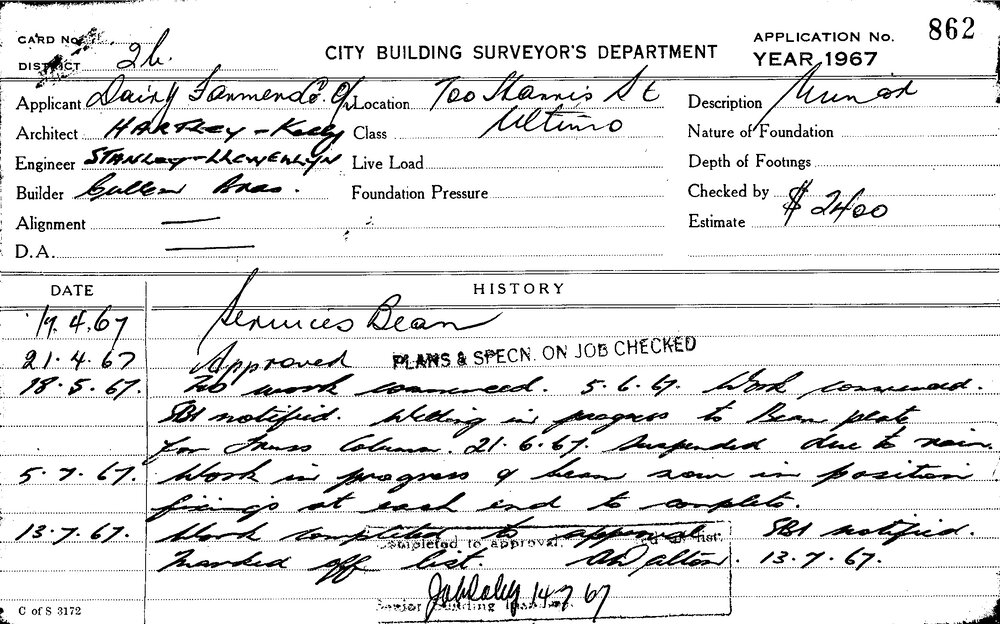 862
CARD No.
APPLICATION No.
DISTRICT 2b.
CITY BUILDING SURVEYOR'S DEPARTMENT
YEAR 1967
Applicant Dairy Farmers Location 700 Harris St Description Minor
Architect HARTLEY - Kelly Class Ultimo Nature of Foundation
Engineer STANLEY - LLEWELLYN Live Load Depth of Footings
Builder Gullen Bros. Foundation Pressure Checked by
Alignment — Estimate $2400
D.A. —
DATE HISTORY
19.4.67 Services Beam
21.4.67 Approved PLANS & SPECN. ON JOB CHECKED
18.5.67. No work commenced. 5.6.67. Work commenced.
SBI notified. Welding in progress to Beam plate
for Truss Column. 21.6.67. Suspended due to rain.
5.7.67. Work in progress & beam now in position
fixings at each end to complete.
13.7.67. Work completed to approval. SBI notified.
Completed to approval. list.
Marked off list. 13.7.67.
14.7.67
Senior Building Inspector
C of S 3172